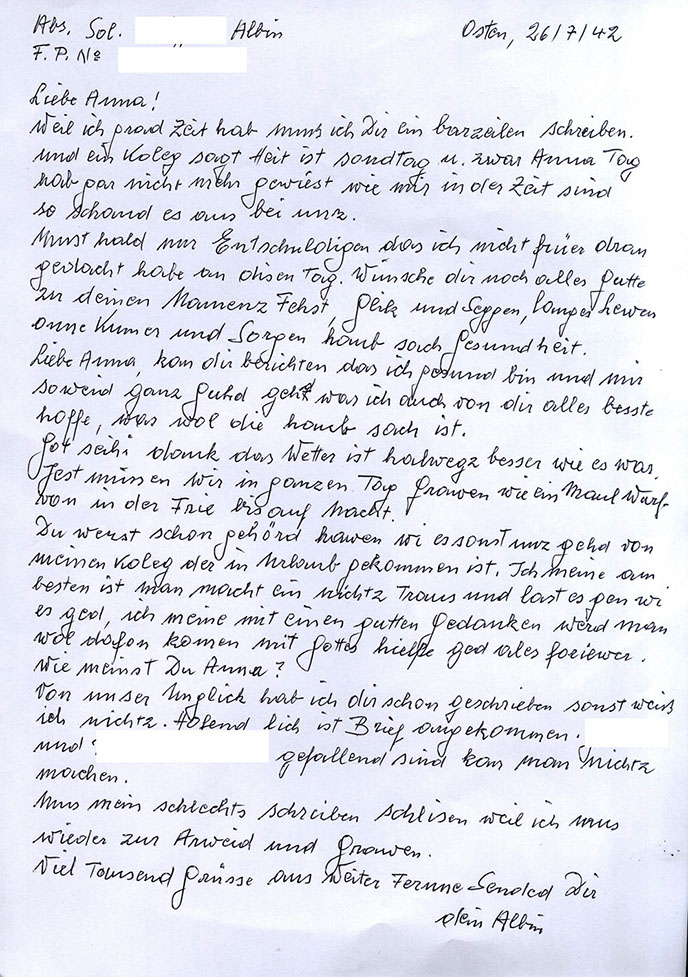 Abs. Sol. Albin Osten, 26/7/42
F. P. No
Liebe Anna!
Weil ich grad Zeit hab mus ich Dir ein barzeilen schreiben.
und ein Koleg sagt Heit ist sondtag u. zwar Anna Tag
hab gar nicht mehr gewiest wie mir in der Zeit sind
so schaud es aus bei unz.
Must hald mir Entschuldigen das ich nicht früer dran
gedacht habe an disen Tag. Wünsche dir noch alles gutte
zu deinen Namenz Fehst, Glik und Seggen, langes lewen
onne Kumer und Sorgen haubt sach gesundheit.
Liebe Anna, kan dir berichten das ich gesund bin und mir
soweid ganz guhd geht was ich auch von dir alles besste
hoffe, was wol die haubt sach ist.
Got seihi dank das Wetter ist halwegz besser wie es war.
Jest müssen wir in ganzen Tag Grawen wie ein Maul Wurf
von in der Frie bis auf Nacht.
Du werst schon gehörd hawen wi es sonst unz gehd von
meinen Koleg der in Urlaub gekommen ist. Ich meine am
besten ist man macht ein nichtz Traus und last es gen wi
es ged, ich meine mit einen gutten gedanken werd man
wol dafon komen mit gottes hielfe ged ales foriewer.
Wie meinst Du Anna?
Von unser Unglick hab ich dir schon geschrieben sonst weiß
ich nichtz. Hofend lich ist Brief angekommen.
und gefallend sind kan man nichtz
machen.
Mus mein schlechts schreiben schlisen weil ich mus
wieder zur Arweid und grawen.
Viel Tausend grüsse aus weiter Ferne Sended Dir
dein Albin